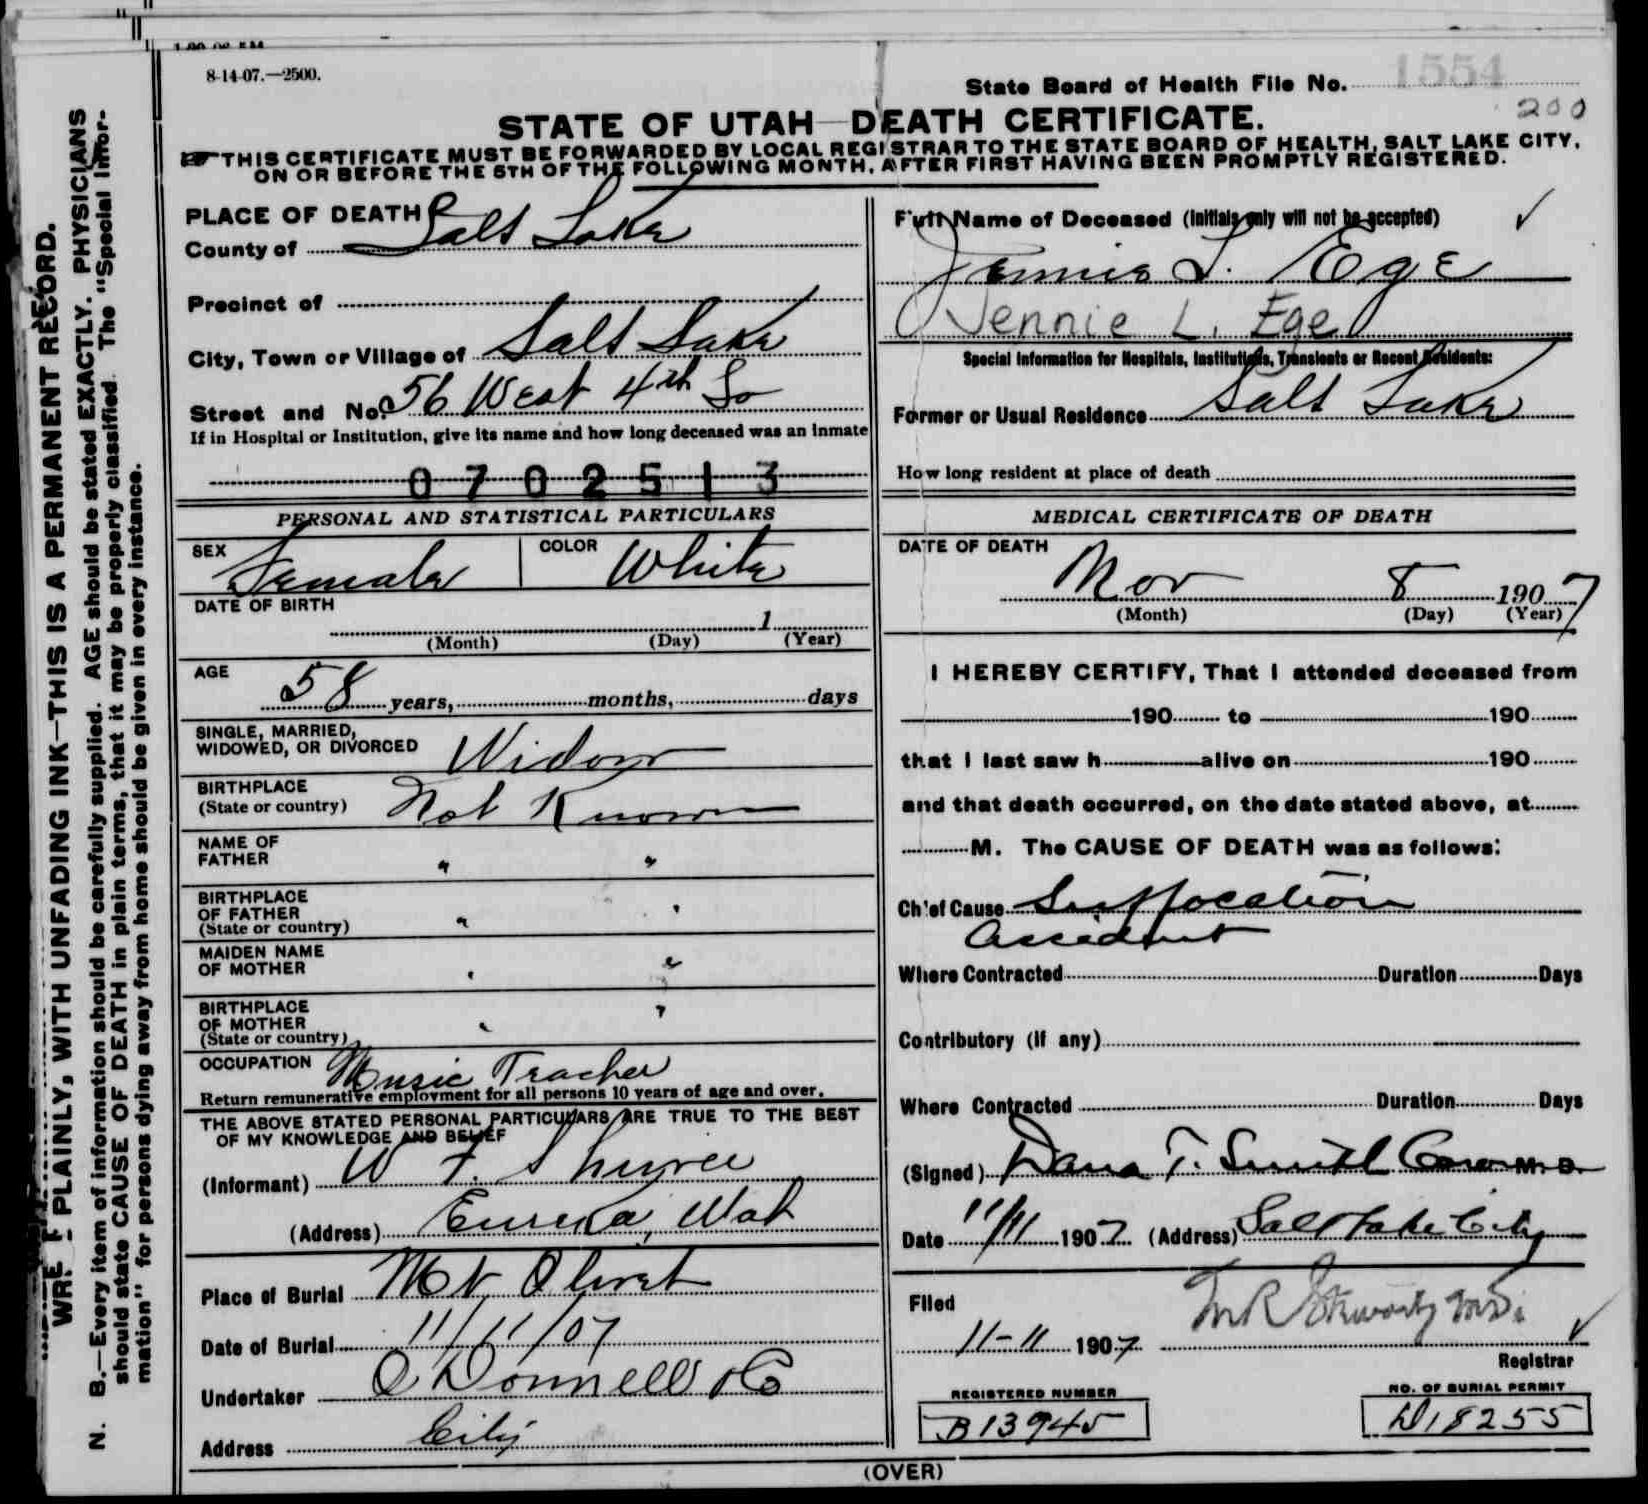 8-14-07.—2500.
State Board of Health File No. 1554
200
STATE OF UTAH—DEATH CERTIFICATE.
THIS CERTIFICATE MUST BE FORWARDED BY LOCAL REGISTRAR TO THE STATE BOARD OF HEALTH, SALT LAKE CITY,
ON OR BEFORE THE 5TH OF THE FOLLOWING MONTH, AFTER FIRST HAVING BEEN PROMPTLY REGISTERED.
PLACE OF DEATH
County of Salt Lake
Precinct of
City, Town or Village of Salt Lake
Street and No. 56 West 4th So
If in Hospital or Institution, give its name and how long deceased was an inmate
0702513
PERSONAL AND STATISTICAL PARTICULARS
SEX Female COLOR White
DATE OF BIRTH 1
(Month) (Day) (Year)
AGE 58 years, months, days
SINGLE, MARRIED,
WIDOWED, OR DIVORCED Widow
BIRTHPLACE
(State or country) Not Known
NAME OF
FATHER " "
BIRTHPLACE
OF FATHER
(State or country) " "
MAIDEN NAME
OF MOTHER " "
BIRTHPLACE
OF MOTHER
(State or country) " "
OCCUPATION Music Teacher
Return remunerative employment for all persons 10 years of age and over.
THE ABOVE STATED PERSONAL PARTICULARS ARE TRUE TO THE BEST
OF MY KNOWLEDGE AND BELIEF
(Informant) W F.
(Address) Eureka, Utah
Place of Burial Mt. Olivet
Date of Burial 11/11/07
Undertaker O'Donnell & Co
Address City
Full Name of Deceased (Initials only will not be accepted)
Jennie L. Ege
Jennie L. Ege
Special Information for Hospitals, Institutions, Transients or Recent Residents:
Former or Usual Residence Salt Lake
How long resident at place of death
MEDICAL CERTIFICATE OF DEATH
DATE OF DEATH
Nov 8 1907
(Month) (Day) (Year)
I HEREBY CERTIFY, That I attended deceased from
190 to 190
that I last saw h alive on 190
and that death occurred, on the date stated above, at
M. The CAUSE OF DEATH was as follows:
Chief Cause Suffocation
Accident
Where Contracted Duration Days
Contributory (If any)
Where Contracted Duration Days
(Signed) Dana T. Smith M.D.
Date 11/11 1907 (Address) Salt Lake City
Filed
11-11 1907
Registrar
REGISTERED NUMBER
B13945
NO. OF BURIAL PERMIT
D18255
(OVER)
PLAINLY, WITH UNFADING INK—THIS IS A PERMANENT RECORD.
N. B.—Every item of information should be carefully supplied. AGE should be stated EXACTLY. PHYSICIANS
should state CAUSE OF DEATH in plain terms, that it may be properly classified. The "Special Infor-
mation" for persons dying away from home should be given in every instance.